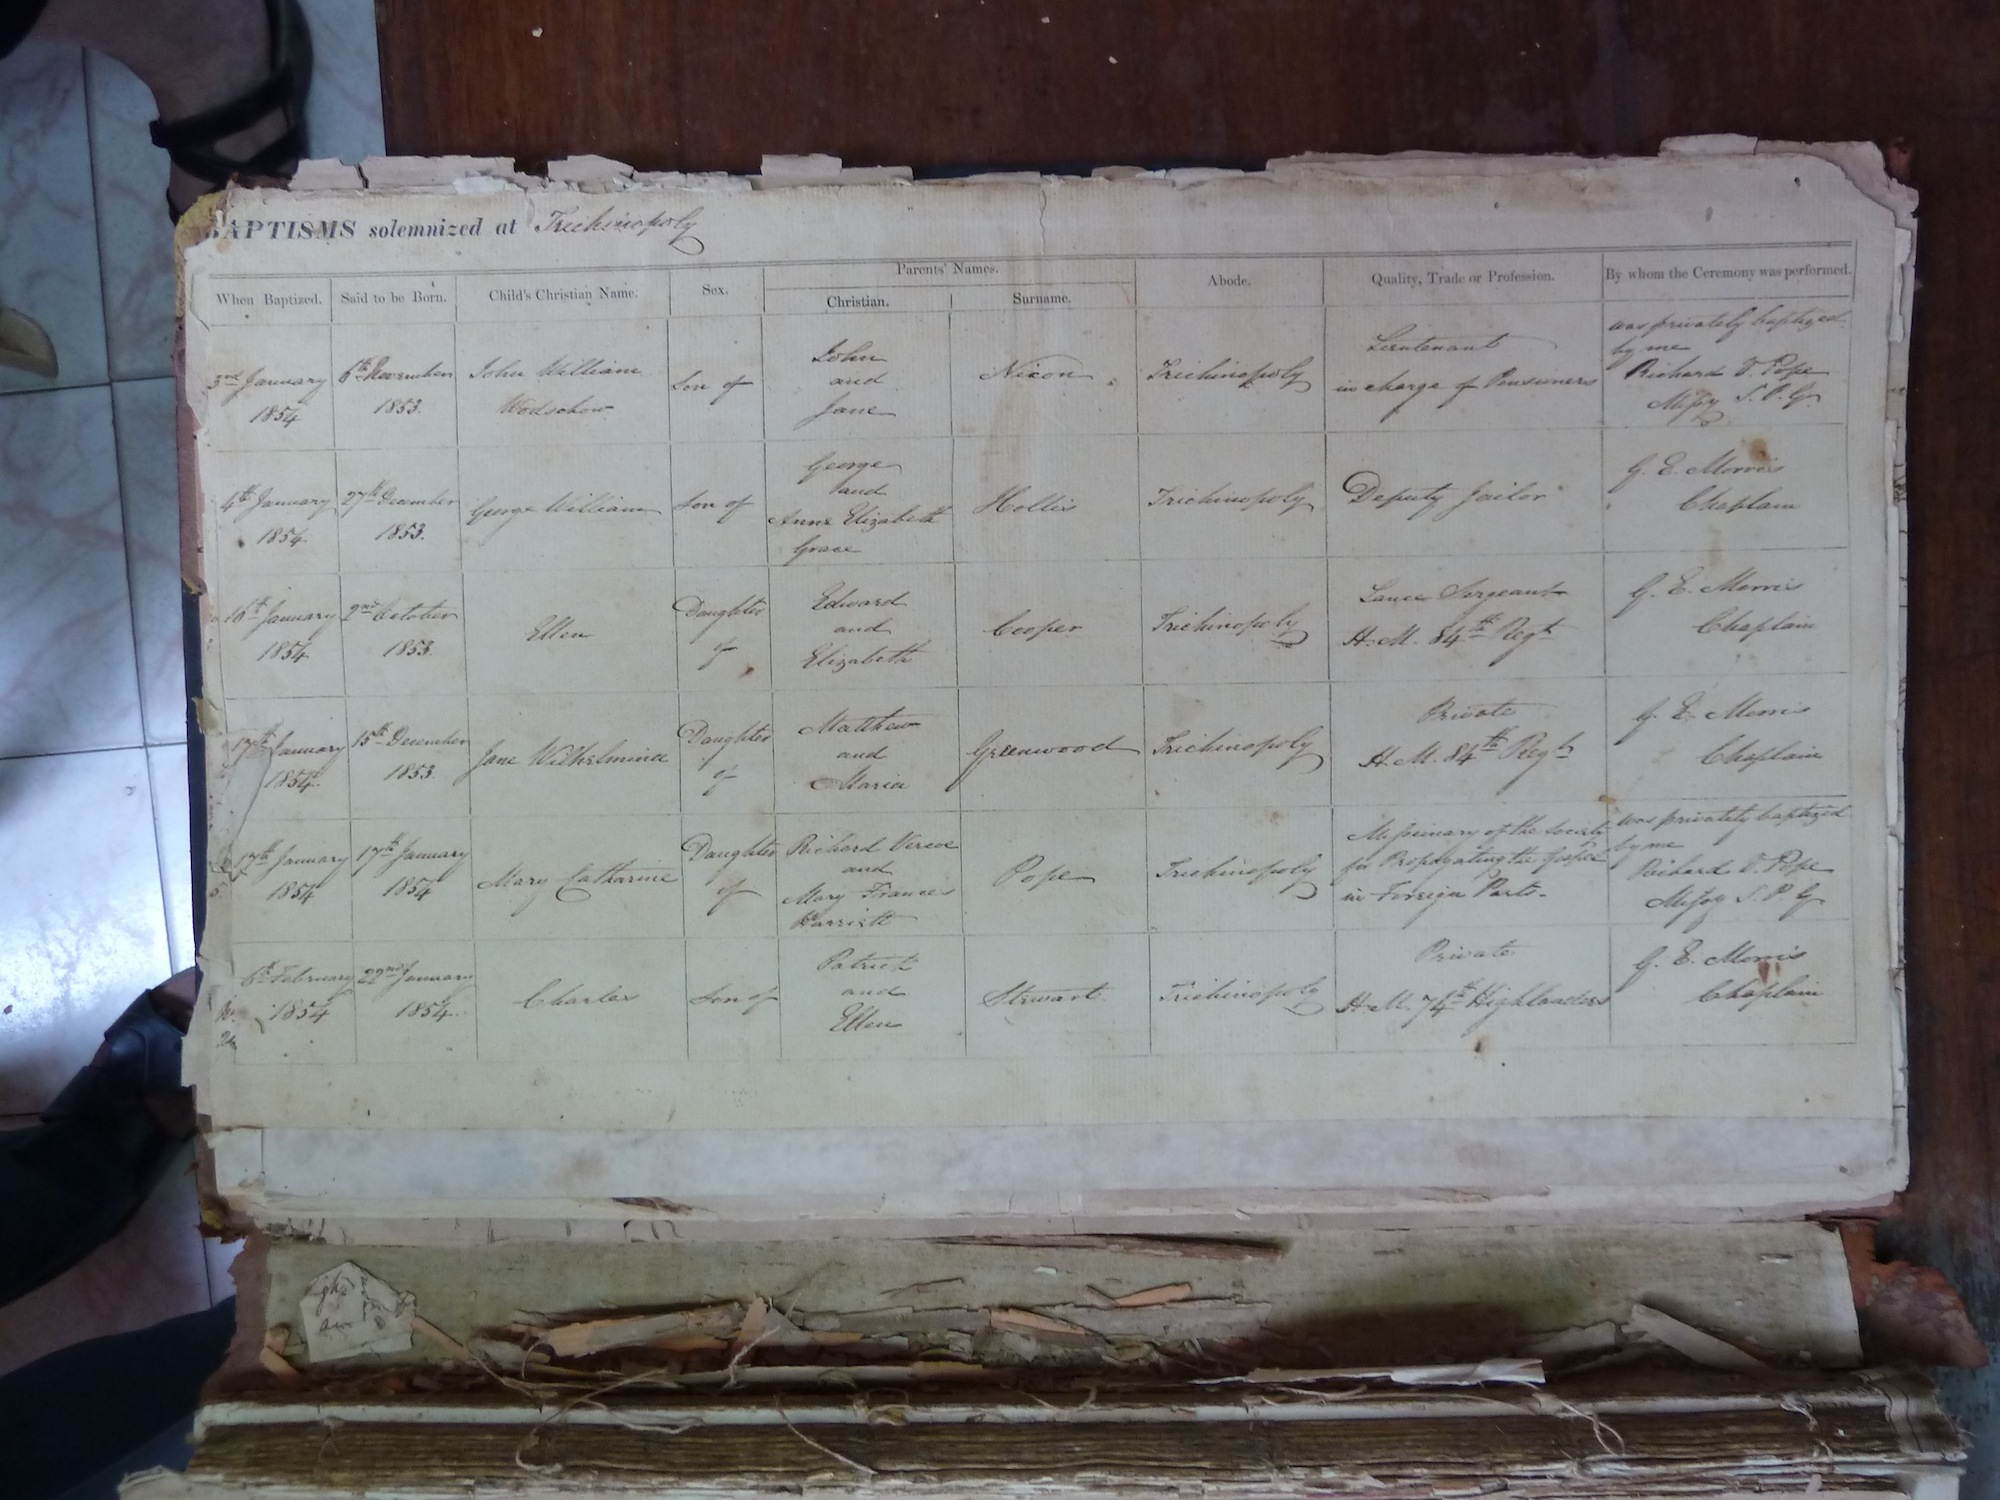 BAPTISMS solemnized at Trichinopoly
When Baptized. Said to be Born. Child's Christian Name. Sex. Parents' Names. Christian. Surname. Abode. Quality, Trade or Profession. By whom the Ceremony was performed.
3rd January
1854
6th November
1853.
John William
Son of
John
and
Jane
Nixon
Trichinopoly
Lieutenant
in charge of Pensioners
was privately baptized
by me
Richard V. Pope
Missy S. P. G.
4th January
1854
27th December
1853.
George William
Son of
George
and
Anne Elizabeth
Grace
Hollis
Trichinopoly
Deputy Jailor
G. E. Morris
Chaplain
16th January
1854
2nd October
1853
Ellen
Daughter
of
Edward
and
Elizabeth
Cooper
Trichinopoly
Lance Sergeant
H. M. 84th Regt
G. E. Morris
Chaplain
17th January
1854
15th December
1853.
Jane Wilhelmina
Daughter
of
Matthew
and
Maria
Greenwood
Trichinopoly
Private
H. M. 84th Regt
G. E. Morris
Chaplain
17th January
1854
17th January
1854
Mary Catharine
Daughter
of
Richard Verco
and
Mary Frances
Harriett
Pope
Trichinopoly
Missionary of the Society
for Propagating the Gospel
in Foreign Parts.
was privately baptized
by me
Richard V. Pope
Missy S. P. G.
6th February
1854
22nd January
1854.
Charles
Son of
Patrick
and
Ellen
Stewart
Trichinopoly
Private
H. M. 74th Highlanders
G. E. Morris
Chaplain